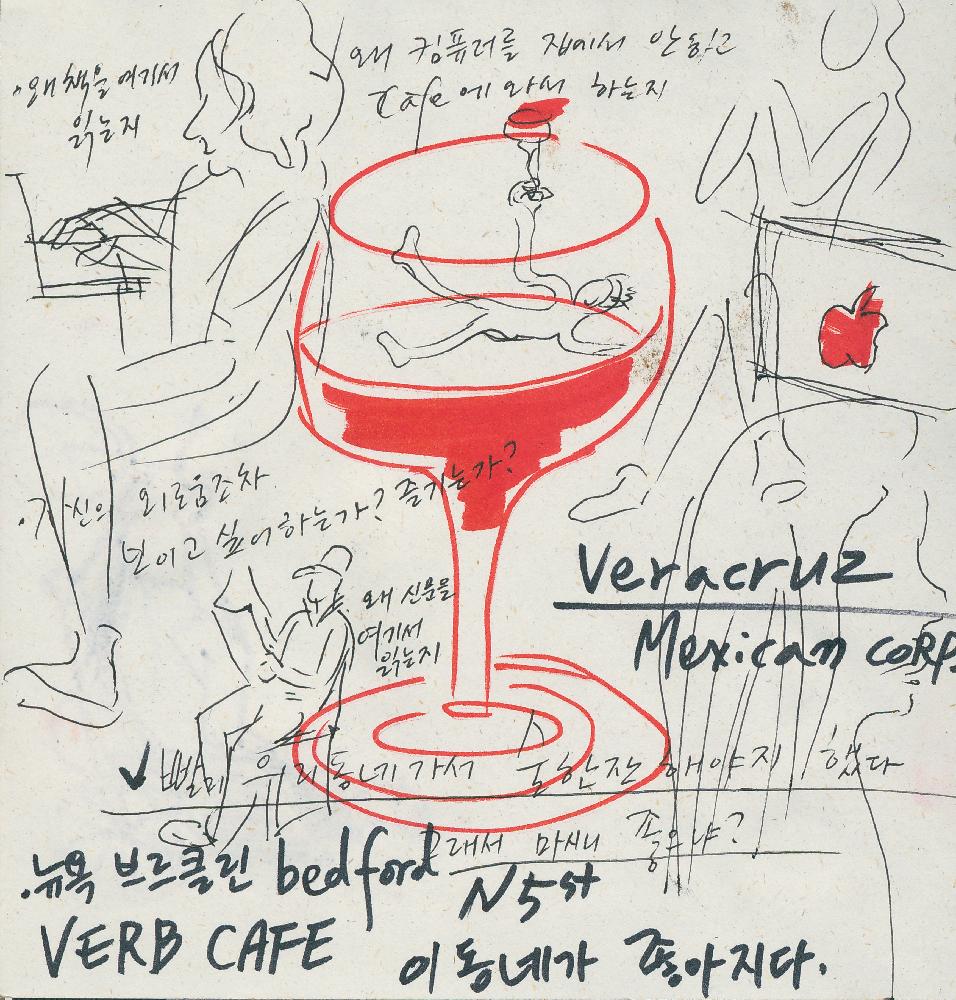 · 왜 책을 여기서
읽는지
왜 컴퓨터를 집에서 안하고
Cafe에 와서 하는지
· 자신의 외로움조차
보이고 싶어하는가? 즐기는가?
왜 신문을
여기서
읽는지
Veracruz
Mexican CORP.
✓ 빨리 우리동네가서 술한잔 해야지 했다
그래서 마시니 좋으냐?
· 뉴욕 브르클린 bedford
N 5 st
VERB CAFE
이 동네가 좋아지다.